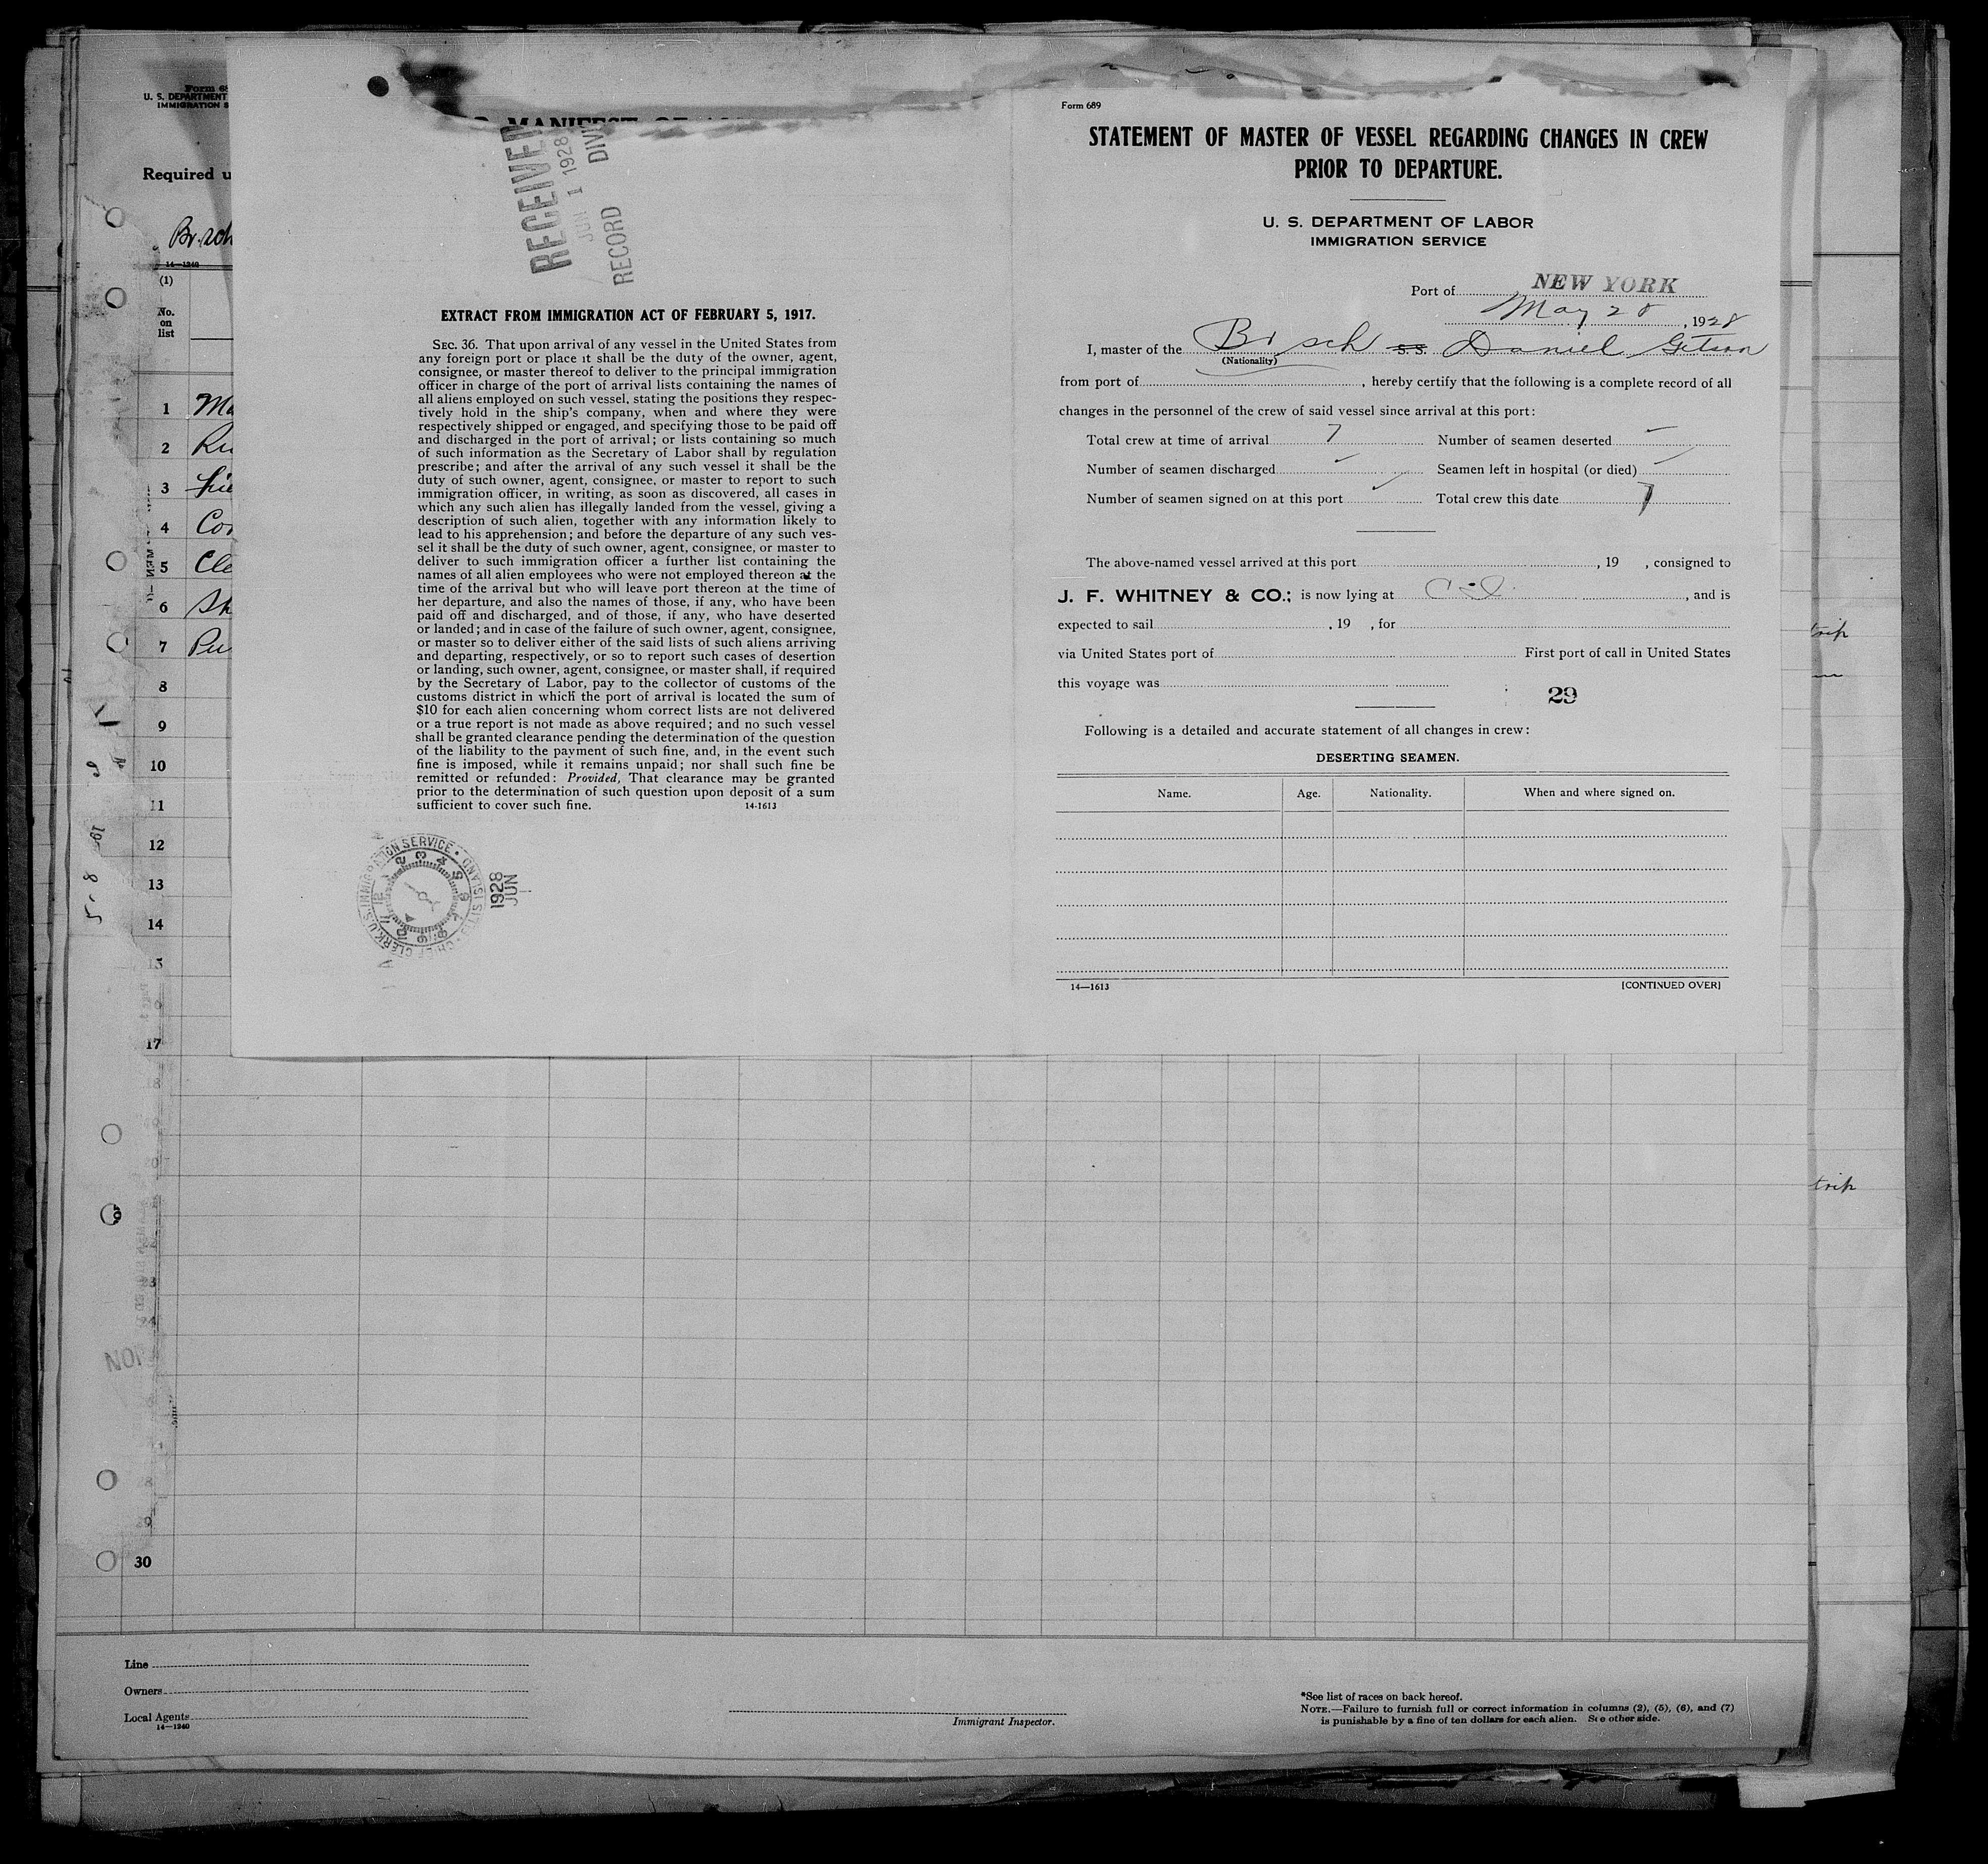 Form 68
U. S. DEPARTMENT
IMMIGRATION S
Required u
Br. sch
14—1240
(1)
No.
on
list
1
2
3
4
5
6
7
8
9
10
11
12
13
14
15
17
18
30
MANIFEST OF
RECEIVED
JUN 1 1928
RECORD DIVI
EXTRACT FROM IMMIGRATION ACT OF FEBRUARY 5, 1917.
SEC. 36. That upon arrival of any vessel in the United States from
any foreign port or place it shall be the duty of the owner, agent,
consignee, or master thereof to deliver to the principal immigration
officer in charge of the port of arrival lists containing the names of
all aliens employed on such vessel, stating the positions they respec-
tively hold in the ship's company, when and where they were
respectively shipped or engaged, and specifying those to be paid off
and discharged in the port of arrival; or lists containing so much
of such information as the Secretary of Labor shall by regulation
prescribe; and after the arrival of any such vessel it shall be the
duty of such owner, agent, consignee, or master to report to such
immigration officer, in writing, as soon as discovered, all cases in
which any such alien has illegally landed from the vessel, giving a
description of such alien, together with any information likely to
lead to his apprehension; and before the departure of any such ves-
sel it shall be the duty of such owner, agent, consignee, or master to
deliver to such immigration officer a further list containing the
names of all alien employees who were not employed thereon at the
time of the arrival but who will leave port thereon at the time of
her departure, and also the names of those, if any, who have been
paid off and discharged, and of those, if any, who have deserted
or landed; and in case of the failure of such owner, agent, consignee,
or master so to deliver either of the said lists of such aliens arriving
and departing, respectively, or so to report such cases of desertion
or landing, such owner, agent, consignee, or master shall, if required
by the Secretary of Labor, pay to the collector of customs of the
customs district in which the port of arrival is located the sum of
$10 for each alien concerning whom correct lists are not delivered
or a true report is not made as above required; and no such vessel
shall be granted clearance pending the determination of the question
of the liability to the payment of such fine, and, in the event such
fine is imposed, while it remains unpaid; nor shall such fine be
remitted or refunded: Provided, That clearance may be granted
prior to the determination of such question upon deposit of a sum
sufficient to cover such fine. 14-1613
CHIEF CLERK U.S. IMMIGRATION SERVICE · ELLIS ISLAND
1928
JUN
Form 689
STATEMENT OF MASTER OF VESSEL REGARDING CHANGES IN CREW
PRIOR TO DEPARTURE.
U. S. DEPARTMENT OF LABOR
IMMIGRATION SERVICE
Port of NEW YORK
May 28, 1928
I, master of the Br sch S. S. Daniel Getson
(Nationality)
from port of, hereby certify that the following is a complete record of all
changes in the personnel of the crew of said vessel since arrival at this port:
Total crew at time of arrival 7 Number of seamen deserted –
Number of seamen discharged Seamen left in hospital (or died)
Number of seamen signed on at this port Total crew this date 7
The above-named vessel arrived at this port, 19 , consigned to
J. F. WHITNEY & CO.; is now lying at, and is
expected to sail, 19 , for
via United States port of First port of call in United States
this voyage was
29
Following is a detailed and accurate statement of all changes in crew:
DESERTING SEAMEN.
Name. Age. Nationality. When and where signed on.
14—1613 [CONTINUED OVER]
trip
trip
Line
Owners
Local Agents
14—1240
Immigrant Inspector.
*See list of races on back hereof.
NOTE.—Failure to furnish full or correct information in columns (2), (5), (6), and (7)
is punishable by a fine of ten dollars for each alien. See other side.